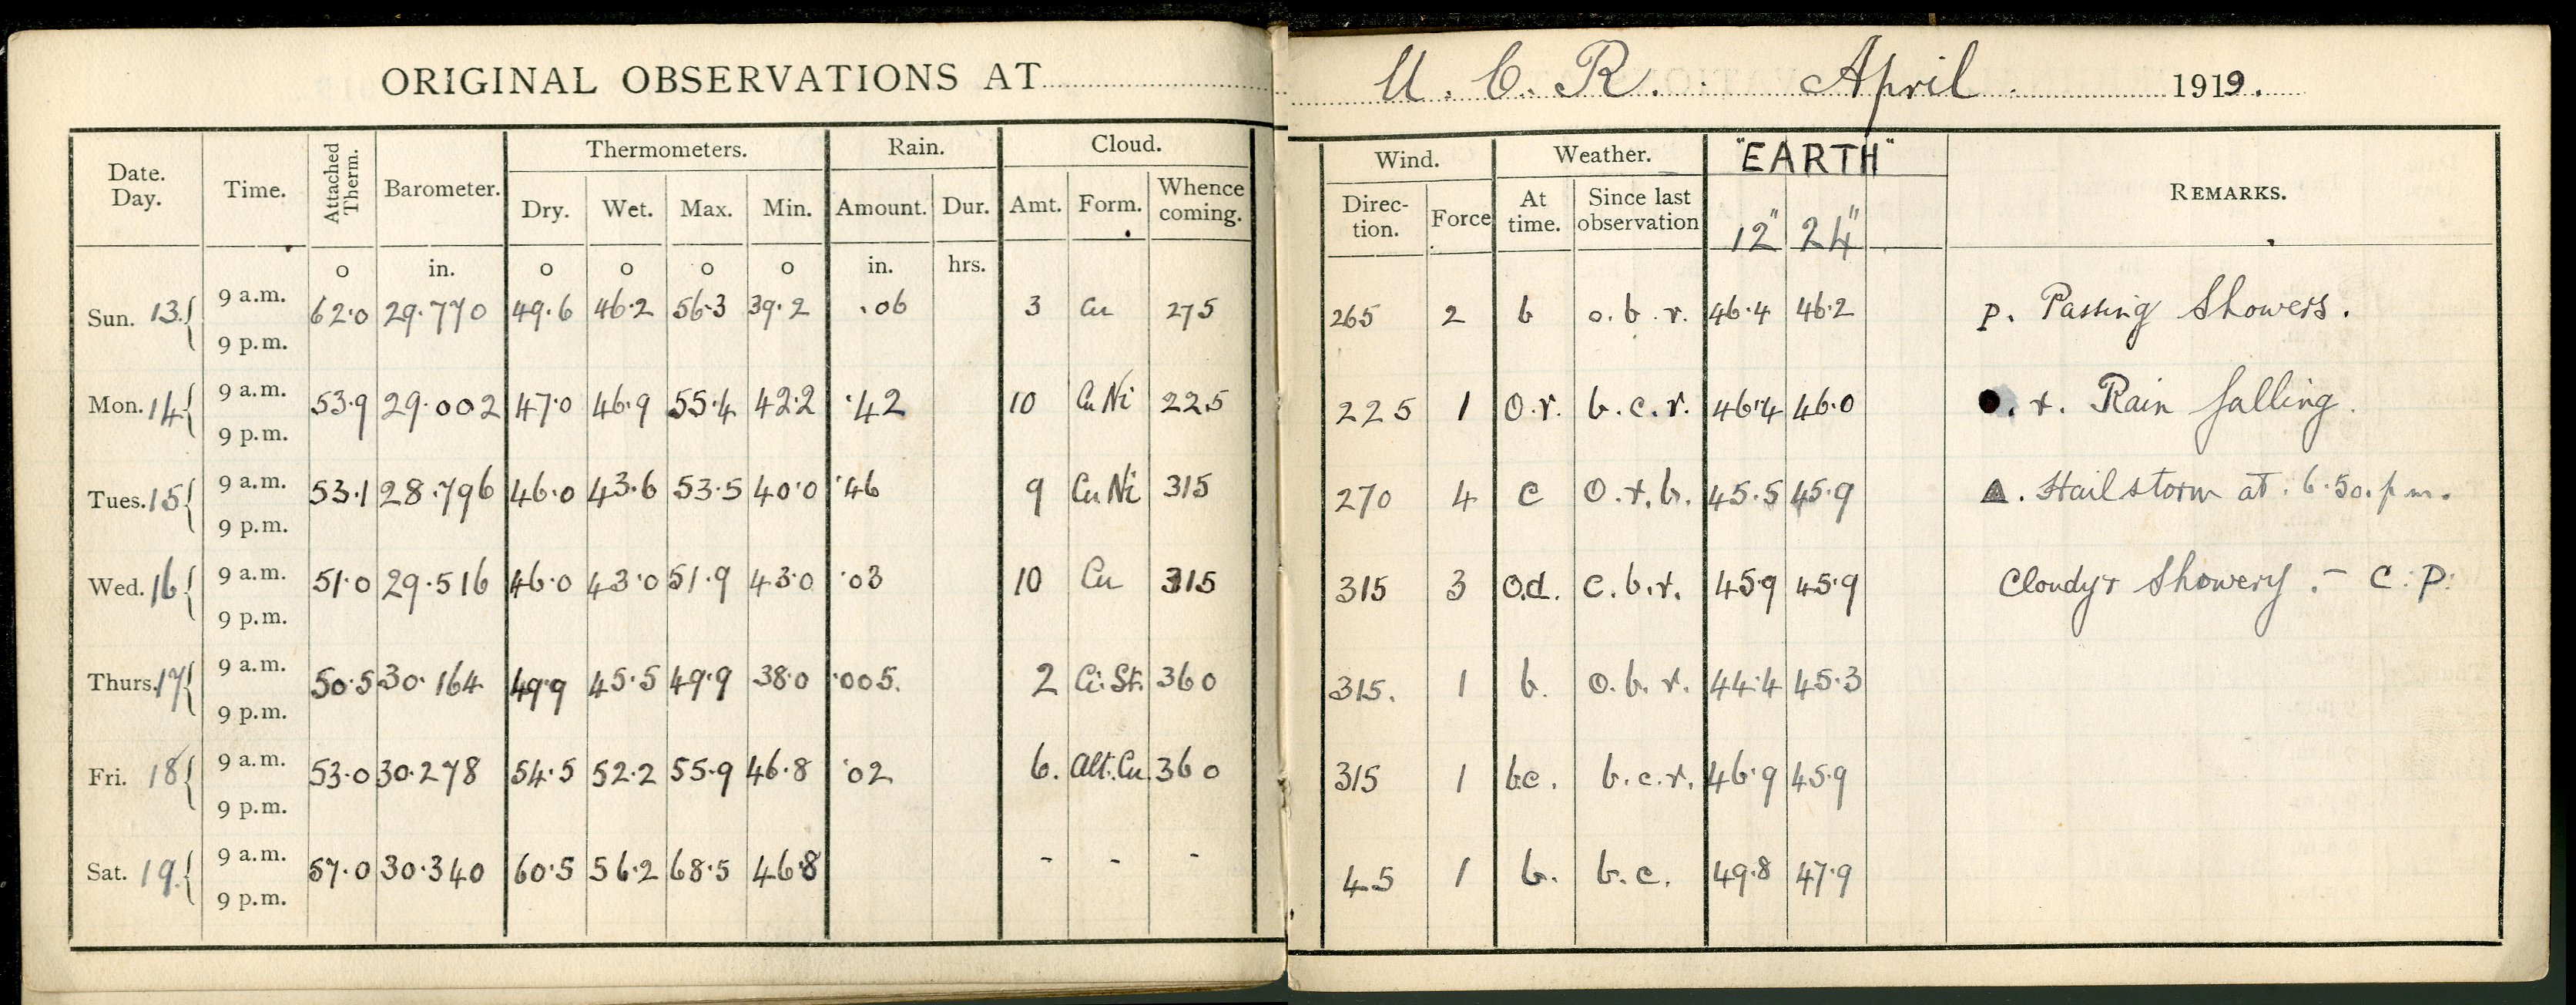 ORIGINAL OBSERVATIONS AT U. C. R. April 1919.
Date. Day. Time. Attached Therm. Barometer. Thermometers. Rain. Cloud. Wind. Weather. "EARTH" REMARKS.
Dry. Wet. Max. Min. Amount. Dur. Amt. Form. Whence coming. Direc- tion. Force At time. Since last observation 12" 24"
o in. o o o o in. hrs.
Sun. 13. 9 a.m. 62.0 29.770 49.6 46.2 56.3 39.2 .06 3 Cu 275 265 2 b o. b. r. 46.4 46.2 p. Passing Showers.
9 p.m.
Mon. 14 9 a.m. 53.9 29.002 47.0 46.9 55.4 42.2 .42 10 Cu Ni 225 225 1 O.r. b. c. r. 46.4 46.0 ●. r. Rain falling.
9 p.m.
Tues. 15 9 a.m. 53.1 28.796 46.0 43.6 53.5 40.0 .46 9 Cu Ni 315 270 4 c O. r. b. 45.5 45.9 ▲. Hailstorm at. 6.50. p.m.
9 p.m.
Wed. 16 9 a.m. 51.0 29.516 46.0 43.0 51.9 43.0 .03 10 Cu 315 315 3 O.d. c. b. r. 45.9 45.9 Cloudy & Showery.- C. P.
9 p.m.
Thurs. 17 9 a.m. 50.5 30.164 49.9 45.5 49.9 38.0 .005. 2 Ci. St. 360 315. 1 b. o. b. r. 44.4 45.3
9 p.m.
Fri. 18 9 a.m. 53.0 30.278 54.5 52.2 55.9 46.8 .02 6. Alt. Cu. 360 315 1 bc. b. c. r. 46.9 45.9
9 p.m.
Sat. 19. 9 a.m. 57.0 30.340 60.5 56.2 68.5 46.8 - - - 45 1 b. b. c. 49.8 47.9
9 p.m.